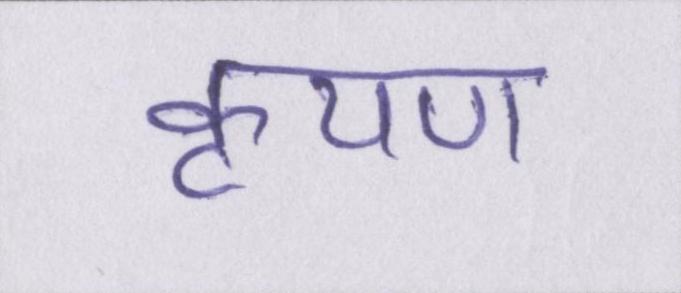 कृपण